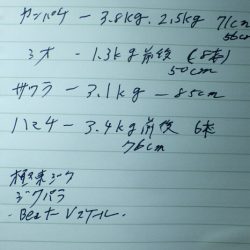 カンパチ - 3.8kg. 2.5kg 71cm
56cm
シオ - 1.3kg前後 (8本)
50cm
サワラ - 3.1kg - 85cm
ハマチ - 3.4kg前後 6本
76cm
ジグパラ
・Beat Vテール・